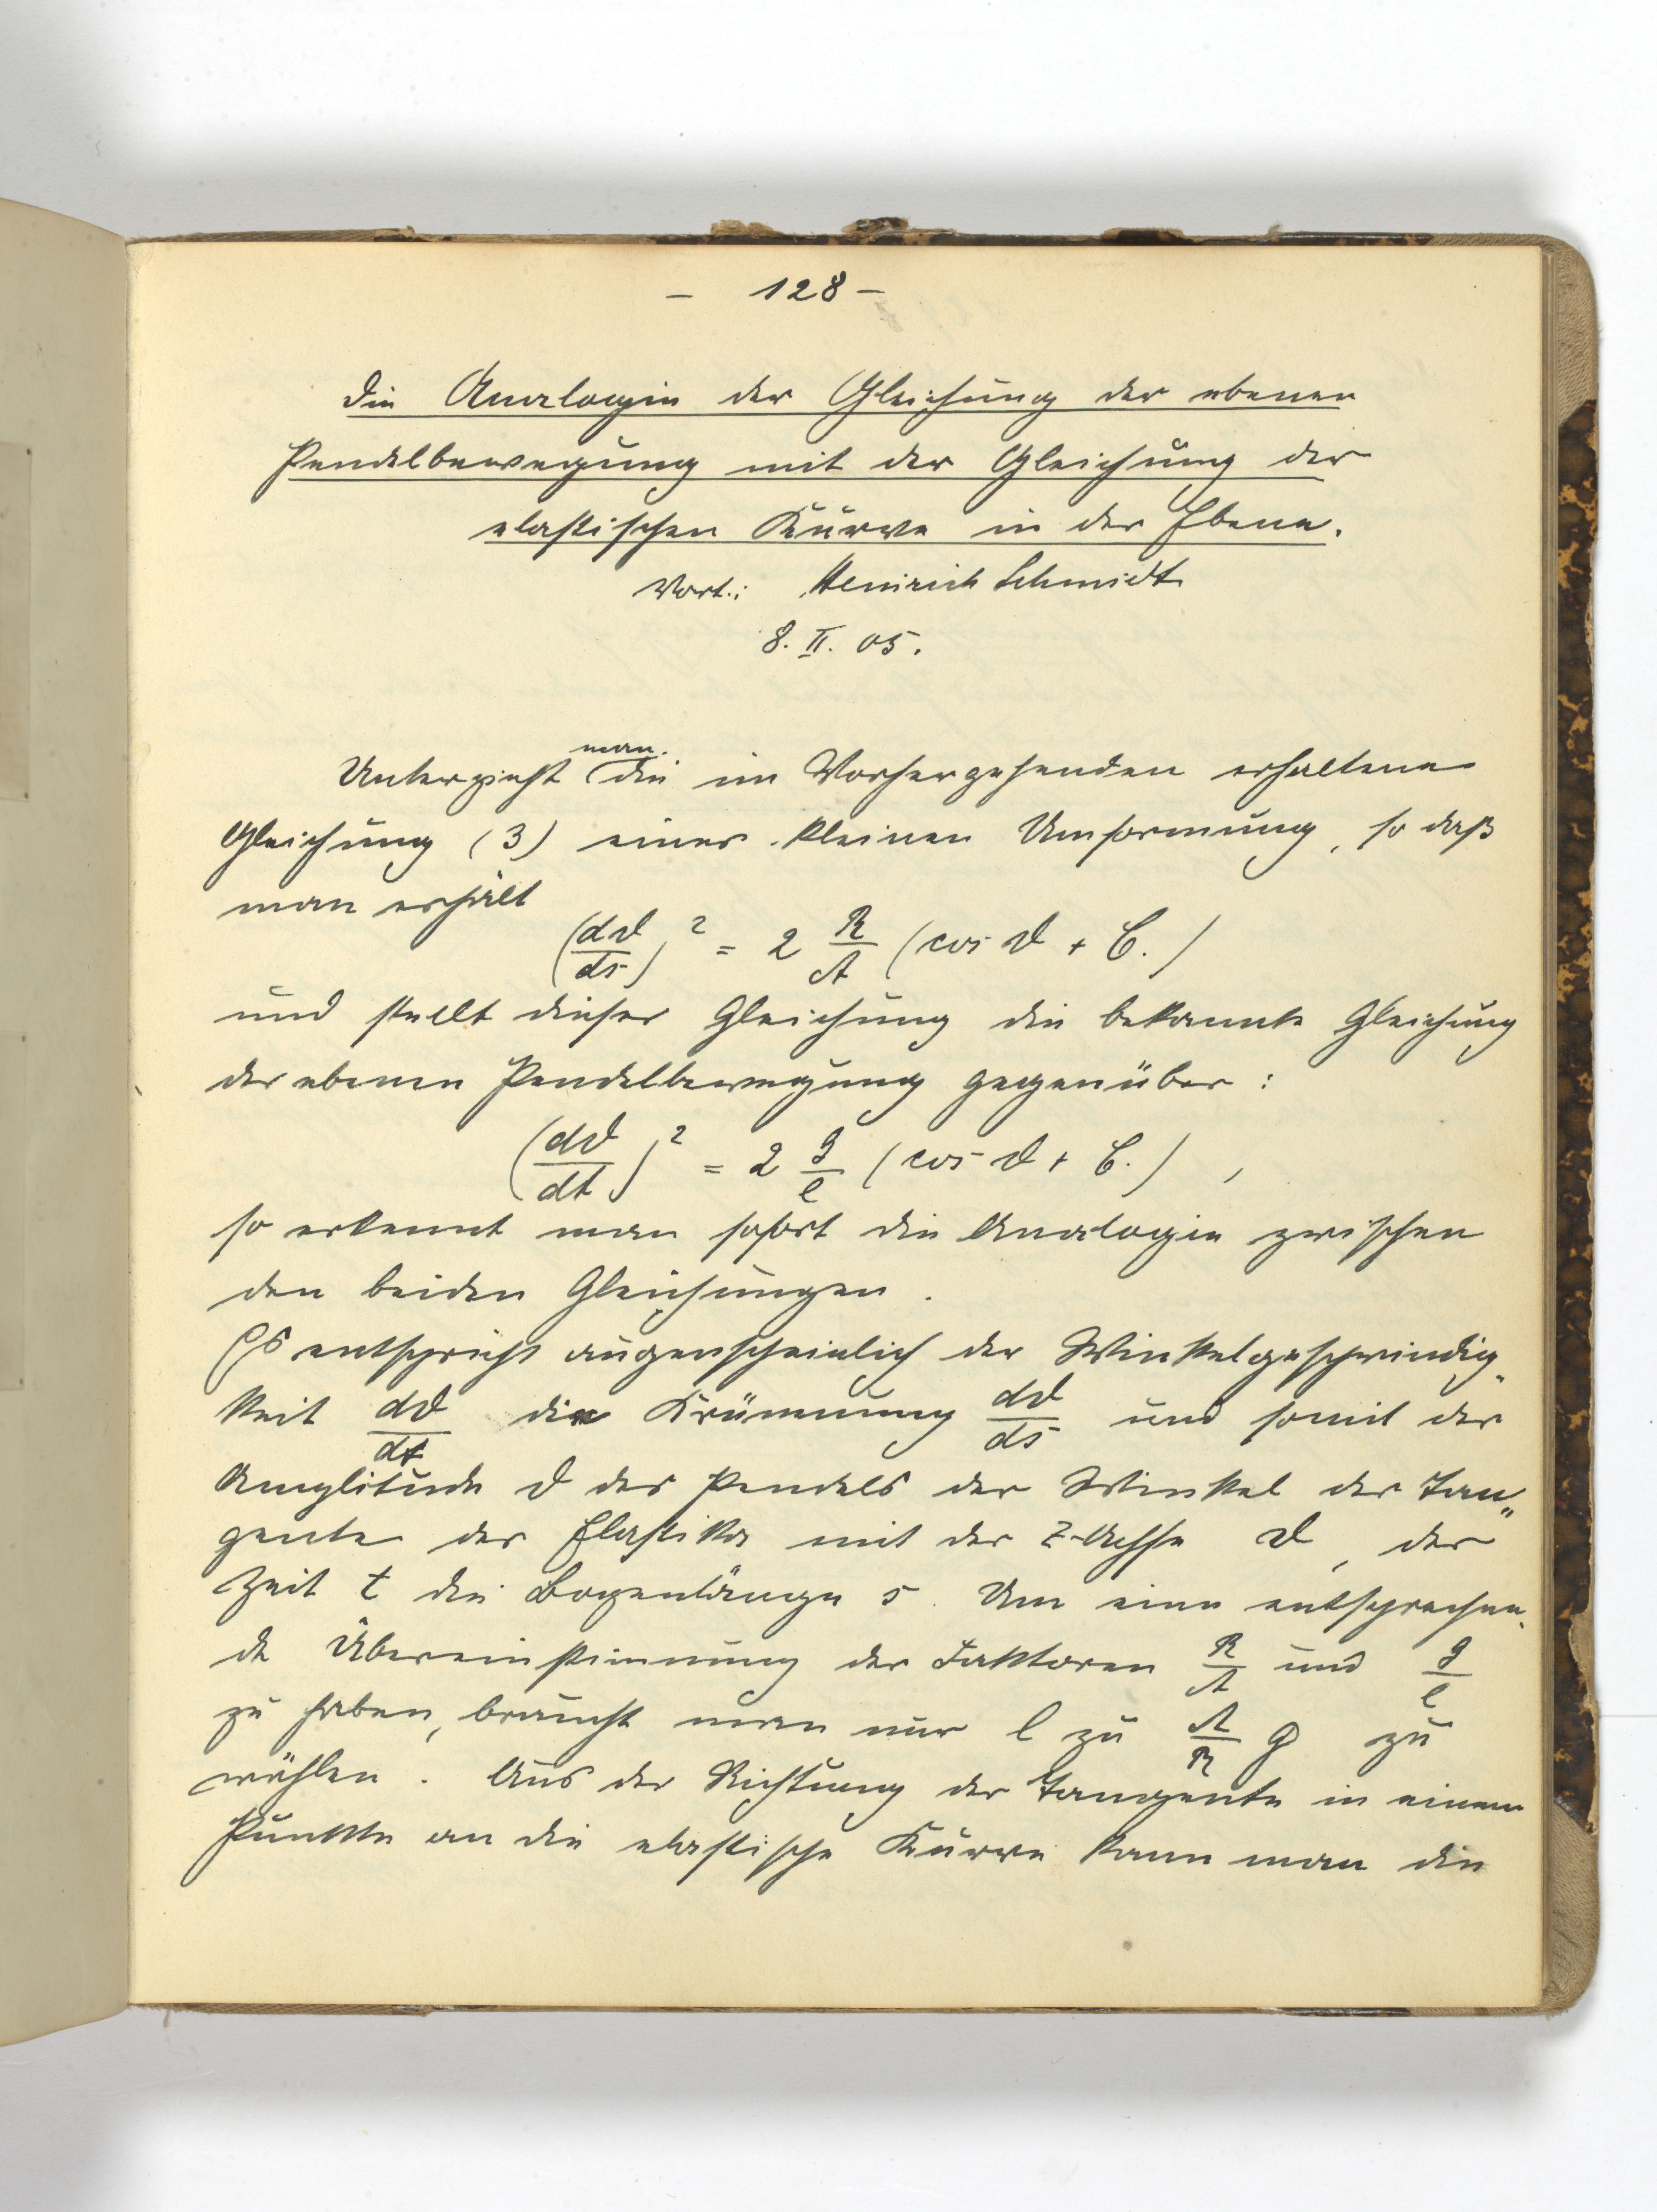 – 128 –
Die Analogie der Gleichung der ebenen
Pendelbewegung mit der Gleichung der
elastischen Kurve in der Ebene.
Vort.: Heinrich Schmidt
8. II. 05.
man
Unterzieht die im Vorhergehenden erhaltene
Gleichung (3) einer kleinen Umformung, so daß
man erhält
(dϑ/ds)² = 2 R/A (cos ϑ + C.)
und stellt dieser Gleichung die bekannte Gleichung
der ebenen Pendelbewegung gegenüber:
(dϑ/dt)² = 2 g/l (cos ϑ + C.) ,
so erkennt man sofort die Analogie zwischen
den beiden Gleichungen.
Es entspricht augenscheinlich der Winkelgeschwindig-
keit dϑ/dt die Krümmung dϑ/ds und somit der
Amplitude ϑ des Pendels der Winkel der Tan-
gente der Elastika mit der Z-Achse ϑ, der
Zeit t die Bogenlänge s. Um eine entsprechen-
de Übereinstimmung der Faktoren R/A und g/l
zu haben, braucht man nur l zu A/R g zu
wählen. Aus der Richtung der Tangente in einem
Punkte an die elastische Kurve kann man die